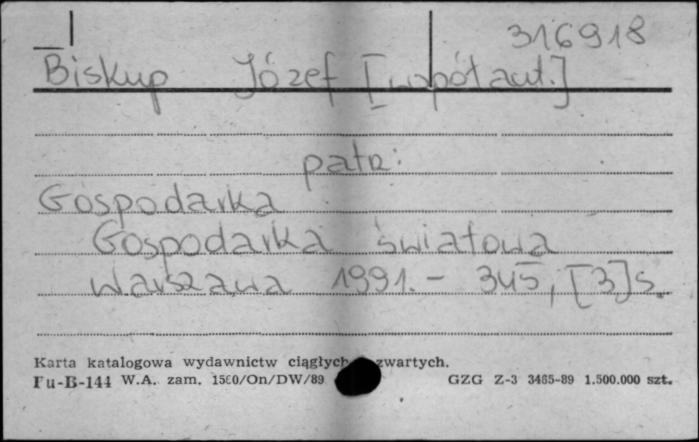 316918
Biskup Józef [współaut.]
patrz:
Gospodarka
Gospodarka światowa
Warszawa 1991. - 345, [3] s.
Karta katalogowa wydawnictw ciągłych zwartych.
Pu-B-144 W.A. zam. 1560/On/DW/89 GZG Z-3 3465-89 1.500.000 szt.